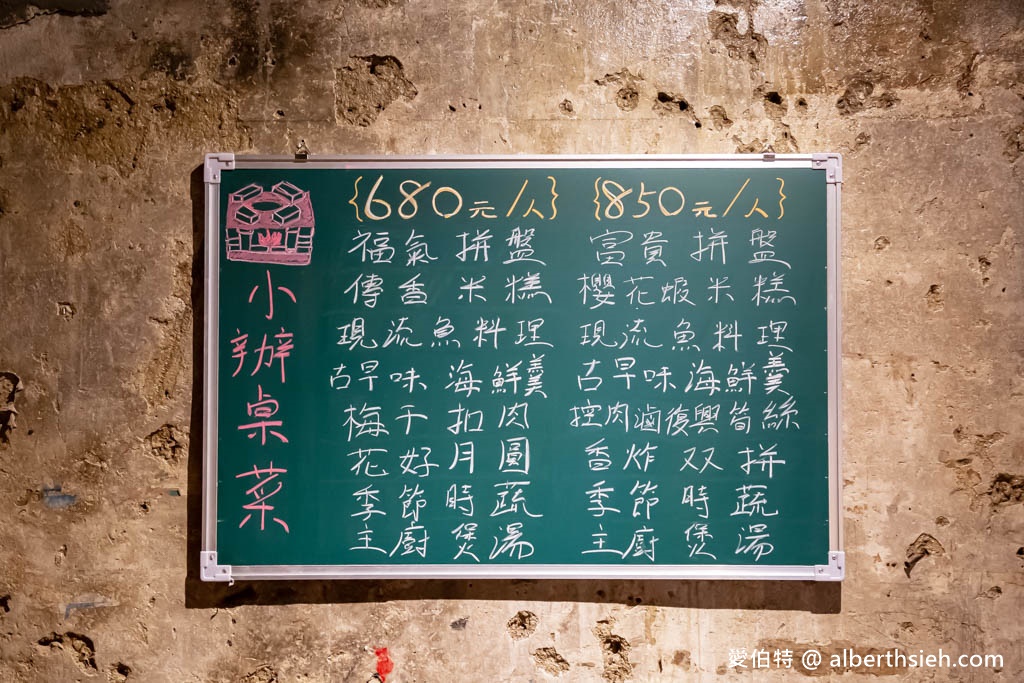 小辦桌菜
{680元/人}
福氣拼盤
傳香米糕
現流魚料理
古早味海鮮羹
梅干扣肉
花好月圓
季節時蔬
主廚煲湯
{850元/人}
富貴拼盤
櫻花蝦米糕
現流魚料理
古早味海鮮羹
控肉滷復興筍絲
香炸双拼
季節時蔬
主廚煲湯
愛伯特 @ alberthsieh.com